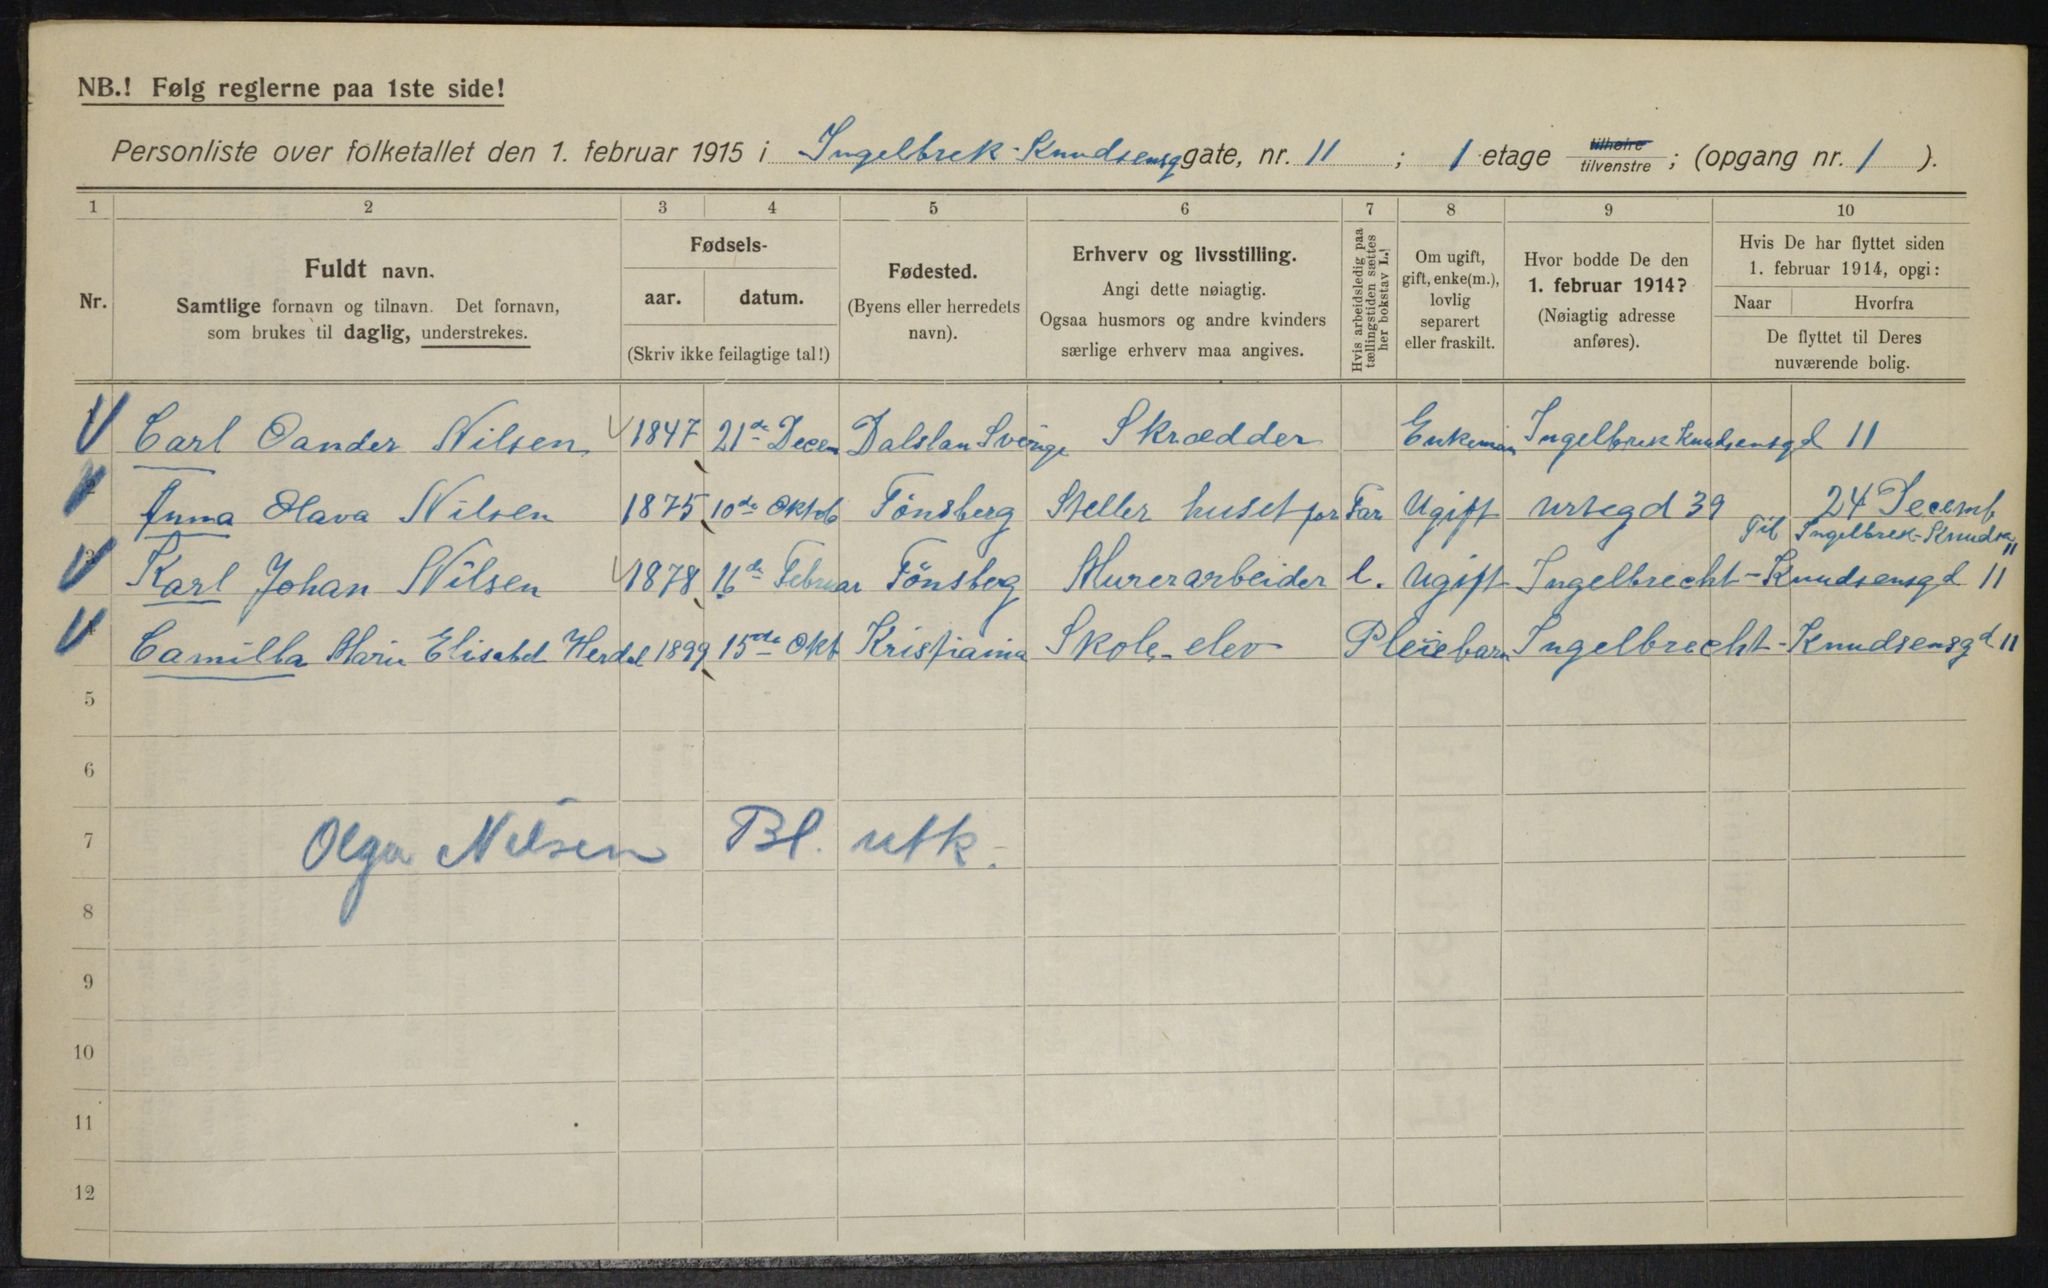 NB.! Følg reglerne paa 1ste side!
Personliste over folketallet den 1. februar 1915 i Ingelbrek-Knudsensg gate, nr. 11 ; 1 etage tilhøire tilvenstre ; (opgang nr. 1 ).
1 2 3 4 5 6 7 8 9 10
Nr.
Fuldt navn.
Samtlige fornavn og tilnavn. Det fornavn,
som brukes til daglig, understrekes.
Fødsels-
aar. datum.
(Skriv ikke feilagtige tal!)
Fødested.
(Byens eller herredets
navn).
Erhverv og livsstilling.
Angi dette nøiagtig.
Ogsaa husmors og andre kvinders
særlige erhverv maa angives.
Hvis arbeidsledig paa
tællingstiden sættes
her bokstav L.!
Om ugift,
gift, enke(m.),
lovlig
separert
eller fraskilt.
Hvor bodde De den
1. februar 1914?
(Nøiagtig adresse
anføres).
Hvis De har flyttet siden
1. februar 1914, opgi:
Naar Hvorfra
De flyttet til Deres
nuværende bolig.
1 Carl Oander Nilsen 1847 21de Decem Dalslan Sverige Skrædder Enkeman Ingelbrek Knudsensgd 11
2 Anna Olava Nilsen 1875 10de Oktob Tönsberg Steller huset for Far Ugift Urtegd 39 24 Decemb
Til Ingelbrek-Knudsen 11
3 Karl Johan Nilsen 1878 16de Februar Tönsberg Murerarbeider l. Ugift Ingelbrecht-Knudsensgd 11
4 Camilla Marie Elisabet Herdal 1899 15de Okt Kristiania Skole-elev Pleiebarn Ingelbrecht-Knudsensgd 11
5
6
7 Olga Nilsen Bl. utk.
8
9
10
11
12